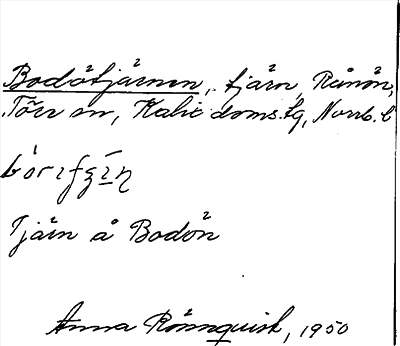 Bodötjärnen, tjärn, Rånön,
Töre sn, Kalix doms.tg, Norrb. l

Tjärn å Bodön
Anna Rönnquist, 1950